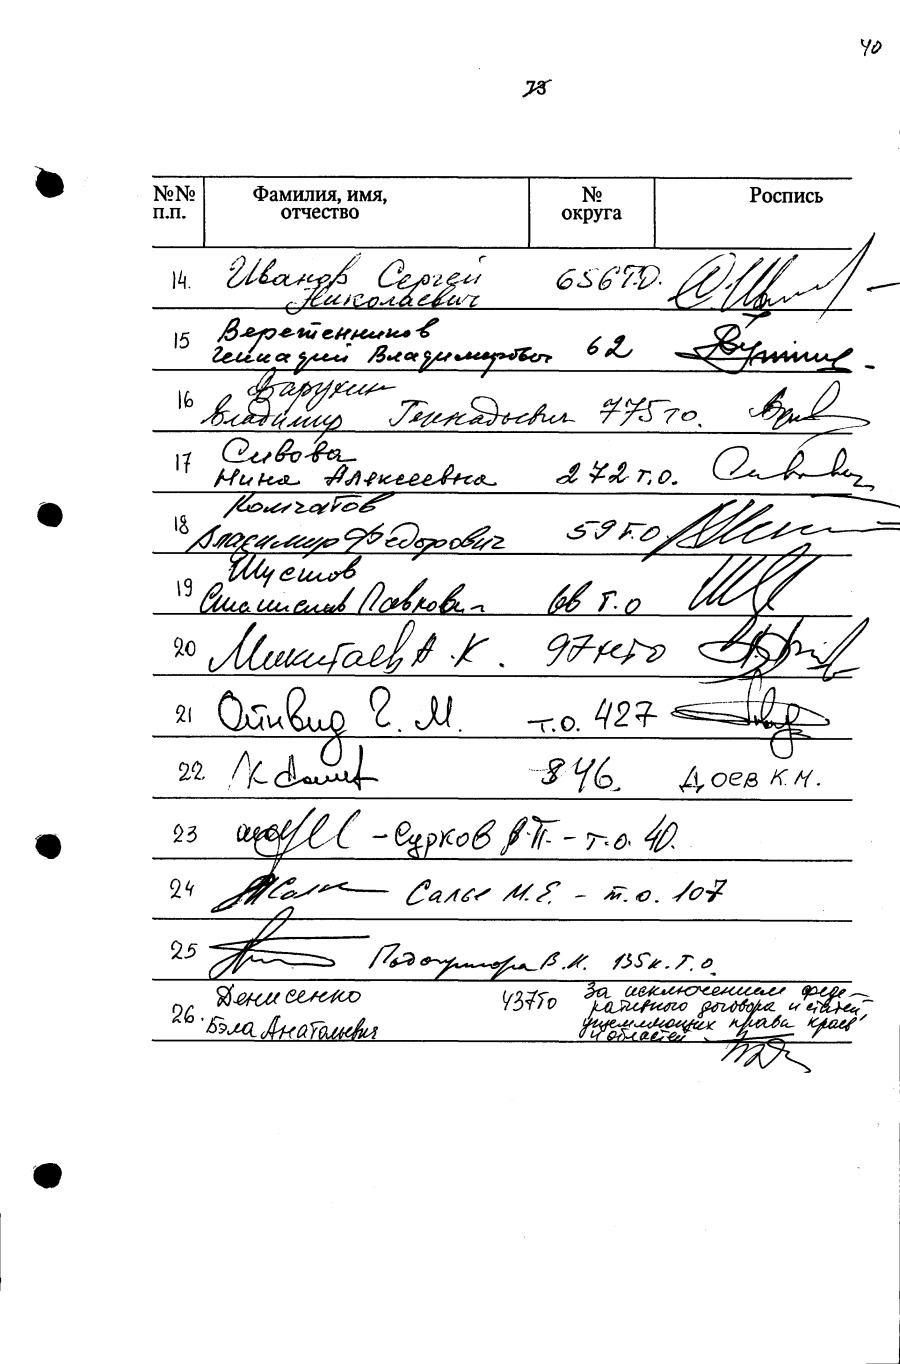 40
73
№№ Фамилия, имя, № Роспись
п.п. отчество округа
14. Иванов Сергей 656 Т.О.
Николаевич
15 Веретенников
Геннадий Владимирович 62
16 Варухин
Владимир Геннадьевич 775 т о.
17 Сивова
Нина Алексеевна 272 т.о.
18 Комчатов
Владимир Федорович 59 т.о.
19 Шустов
Станислав Павлович 66 т.о
20 Микитаев А.К. 97 нто
21 Ойнвид Г. М. т.о. 427
22. 846. Доев К.М.
23 – Сурков В.П. – т.о. 40.
24 Салье М.Е. – т.о. 107
25 Подопригора В.Н. 135 н.т.о.
26. Денисенко 437 то За исключением феде-
ративного договора и статей,
Бэла Анатольевна ущемляющих права краев
и областей